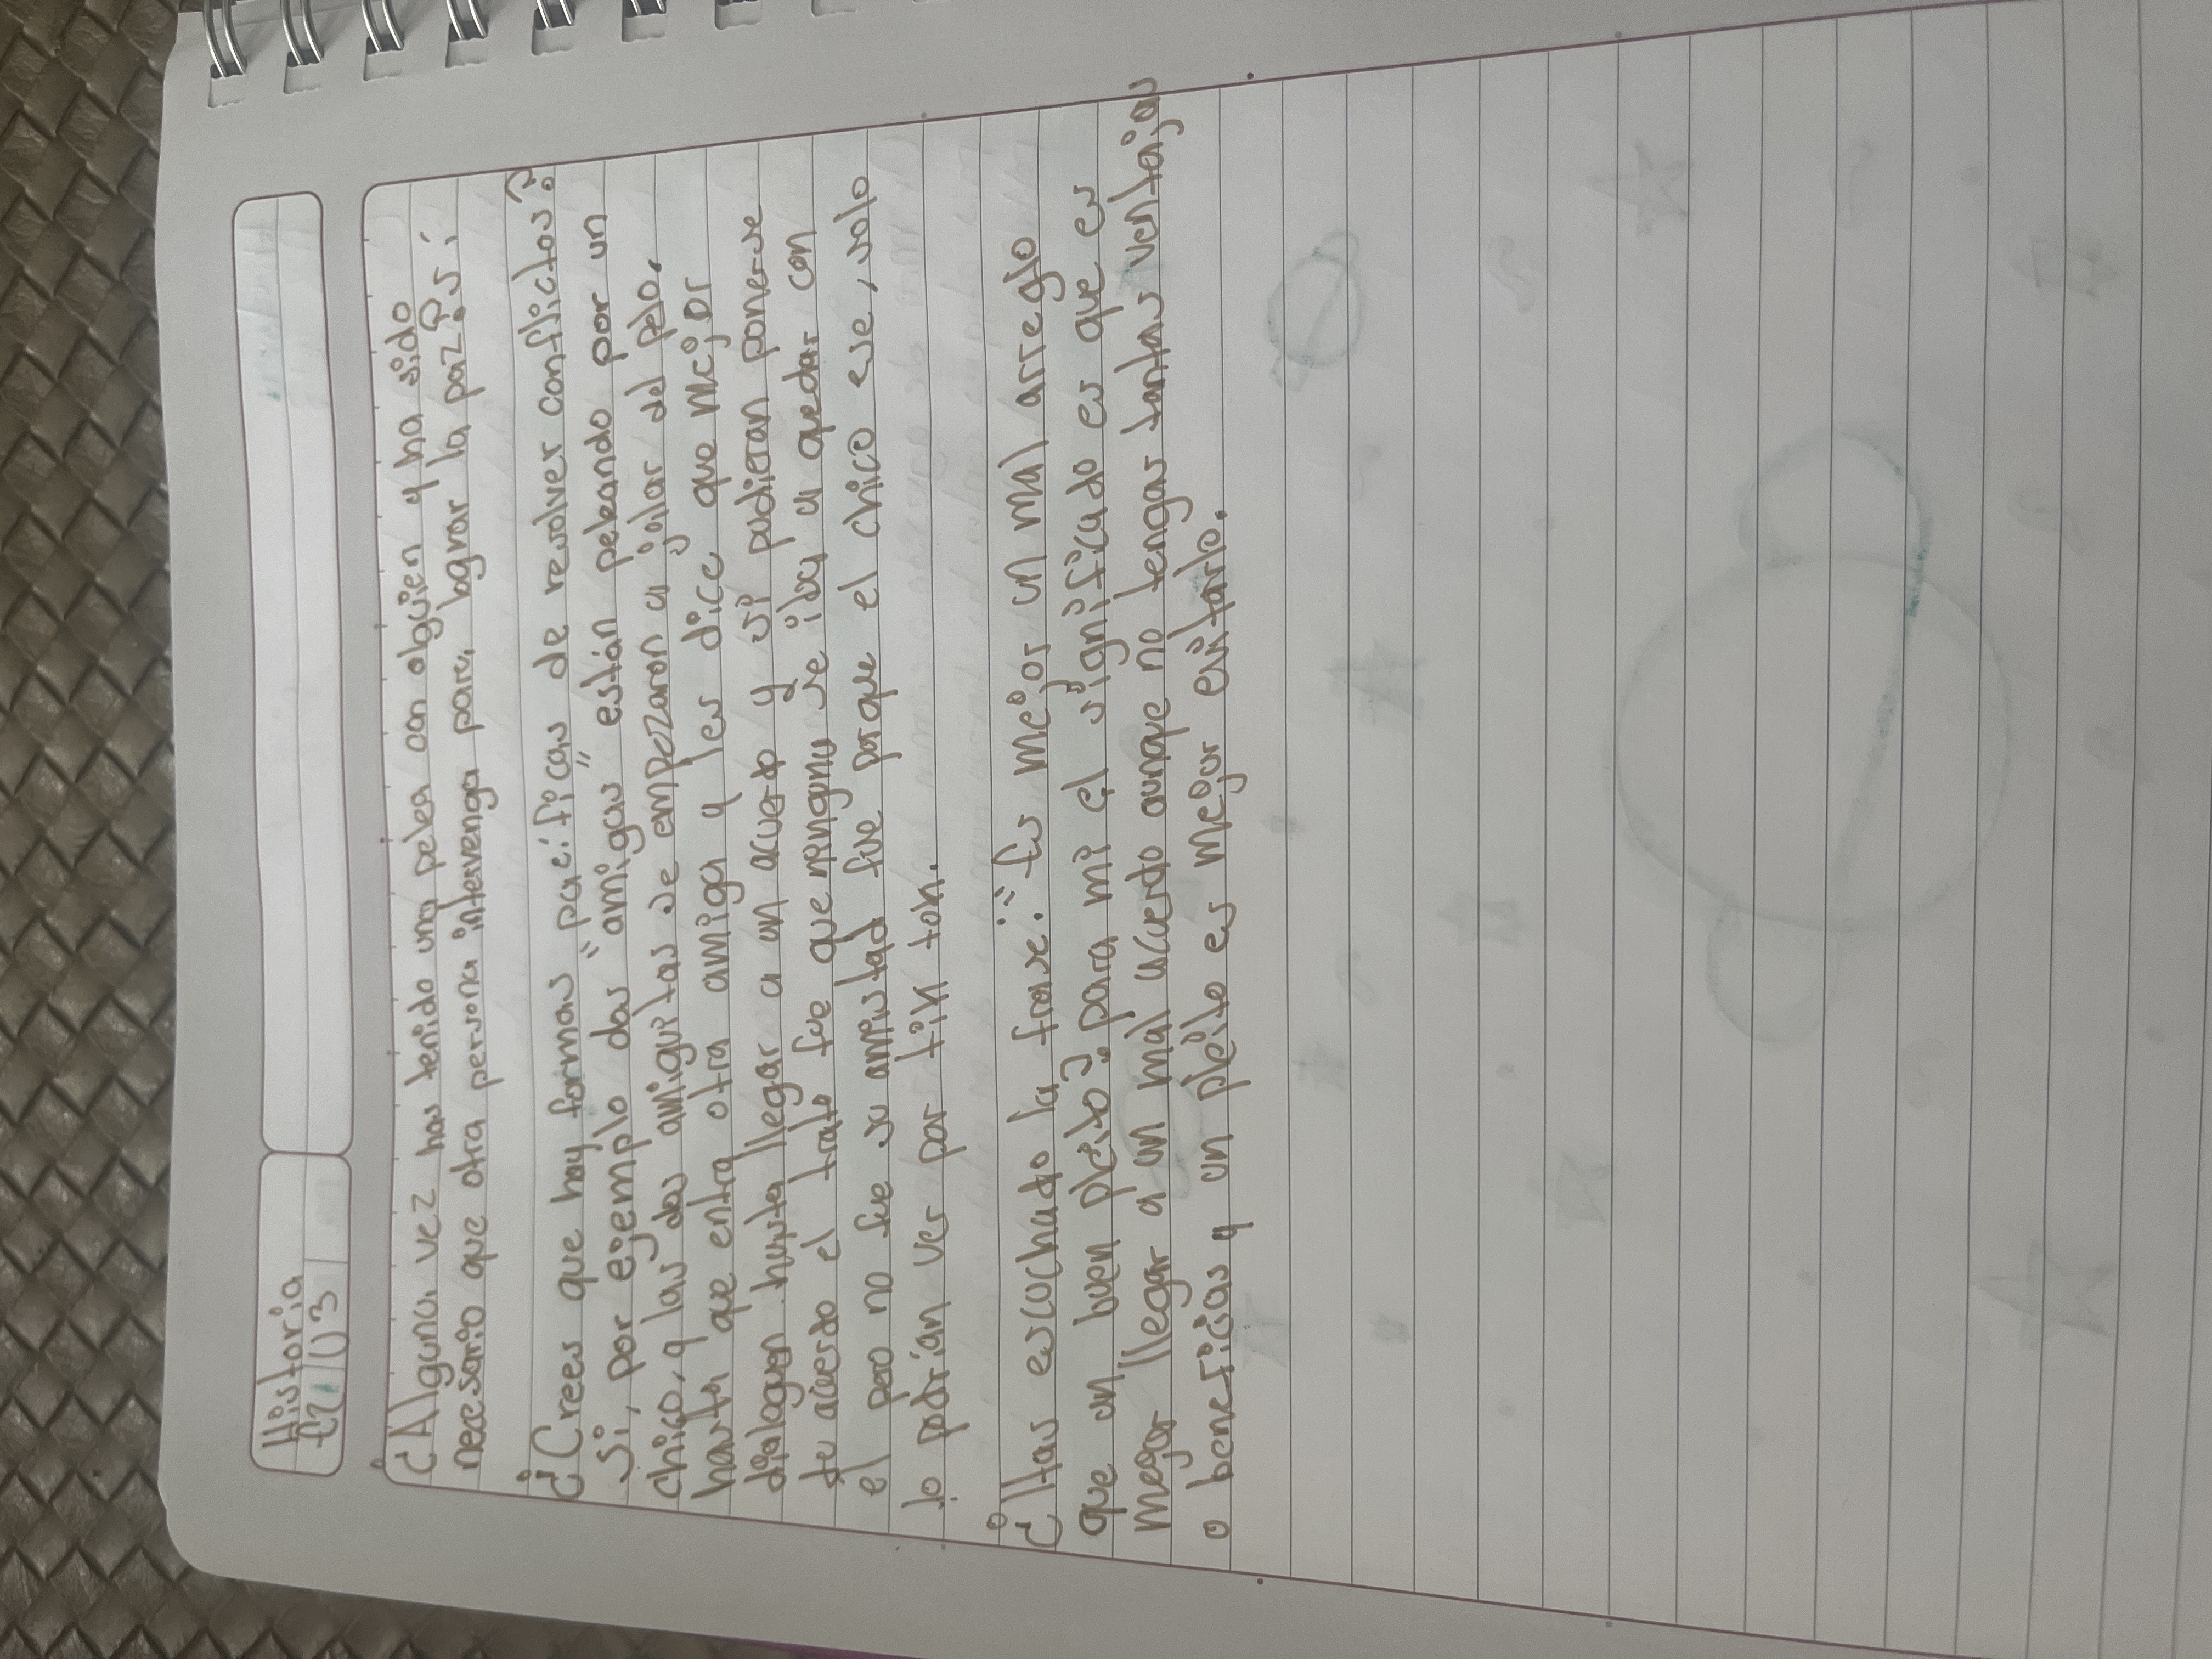 Historia
12/03
¿Alguna vez has tenido una pelea con alguien y ha sido
necesario que otra persona intervenga para lograr la paz? si
¿Crees que hay formas "pacificas" de resolver conflictos?
si, por ejemplo dos amigas estan peleando por un
chico, y las dos amiguitas se empezaron a jalar del pelo.
hasta que entra otra amiga y les dice que mejor
dialoguen hasta llegar a un acuerdo y si pudieran ponerse
de acuerdo el trato fue que ninguna se iba a quedar con
el pero no fue su amistad fue porque el chico ese, solo
lo podrian ver por tik tok.
¿Has escuchado la frase: "Es mejor un mal arreglo
que un buen pleito? para mi el significado es que es
mejor llegar a un mal acuerdo aunque no tengas tantas ventajas
o beneficios y un pleito es mejor evitarlo.